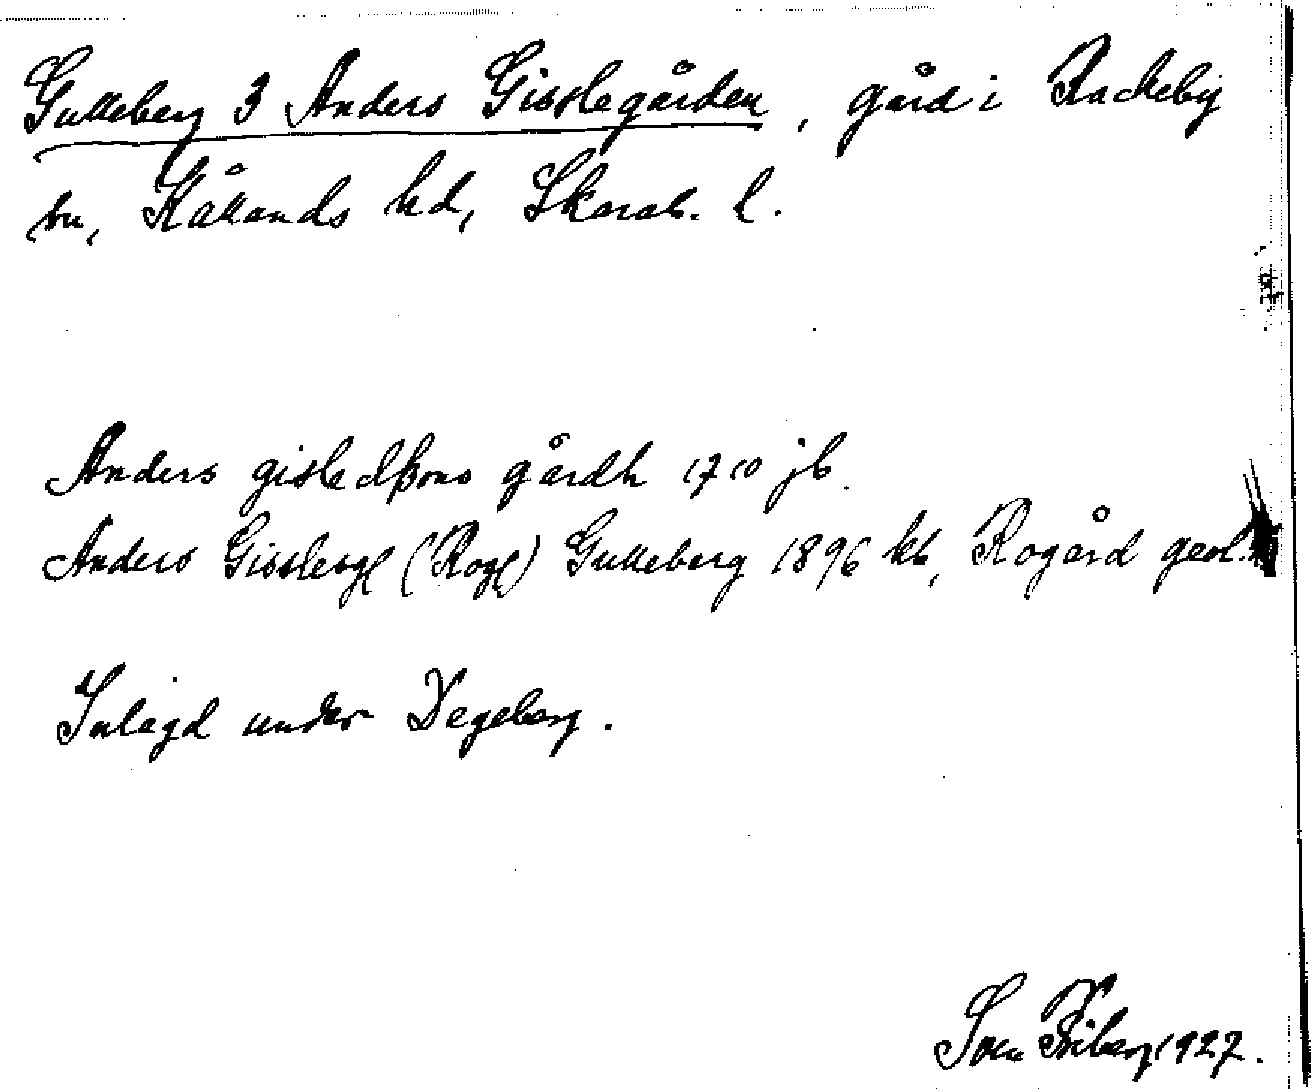 Gulleberg 3 Anders Gisslegården, gård i Rackeby
sn, Kållands hd, Skarab. l.
Anders gisledßons gårdh 1710 jb.
Anders Gisslesgl (Rogl) Gulleberg 1896 kb, Rogård geol.
Inlagd under Degeberg.
Sven Friberg 1927.